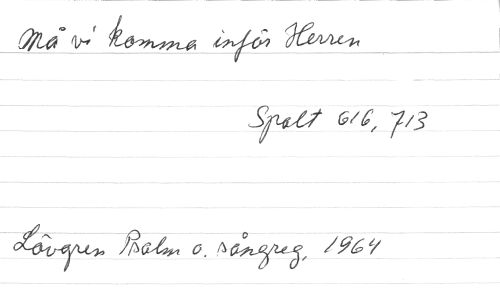 Må vi komma inför Herren
Spalt 616, 713
Lövgren Psalm o. sångreg, 1964